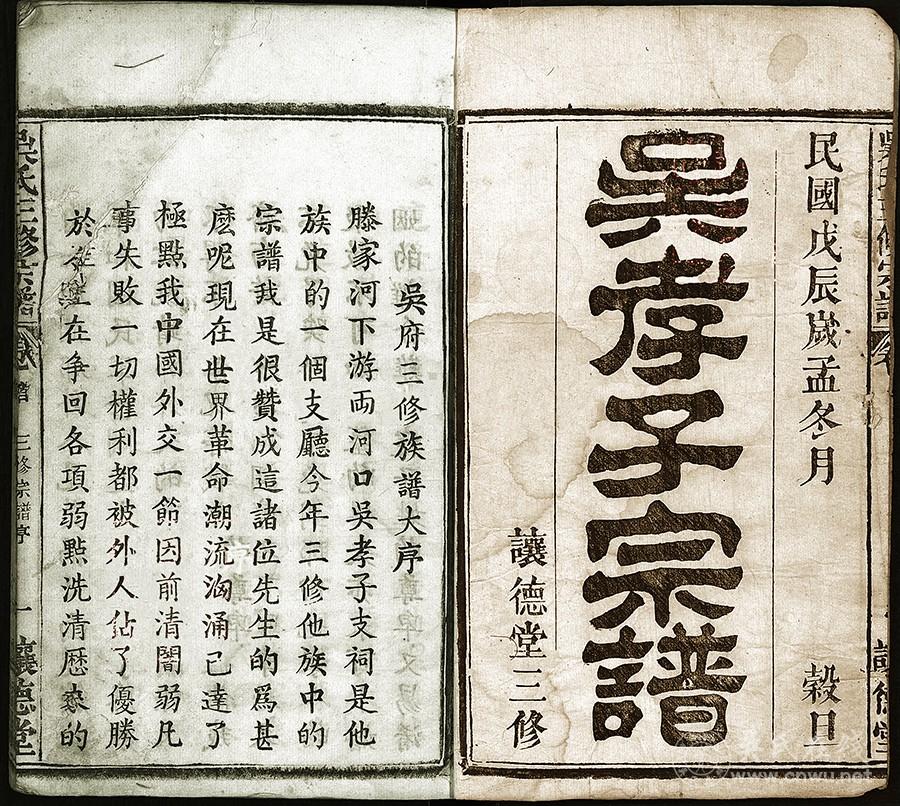 民國戊辰歲孟冬月 穀旦
吳孝子宗譜
讓德堂三修
吳府三修族譜大序
滕家河下游両河口吳孝子支祠是他
族中的一個支廳今年三修他族中的
宗譜我是很贊成這諸位先生的爲甚
麽呢現在世界革命潮流洶涌已達了
極點我中國外交一節因前清闇弱凡
事失敗一切權利都被外人佔了優勝
於 在争回各項弱點洗清歷來的
吳氏三修宗譜 卷 譜 三修宗譜序 一 讓德堂
www.cnwu.net